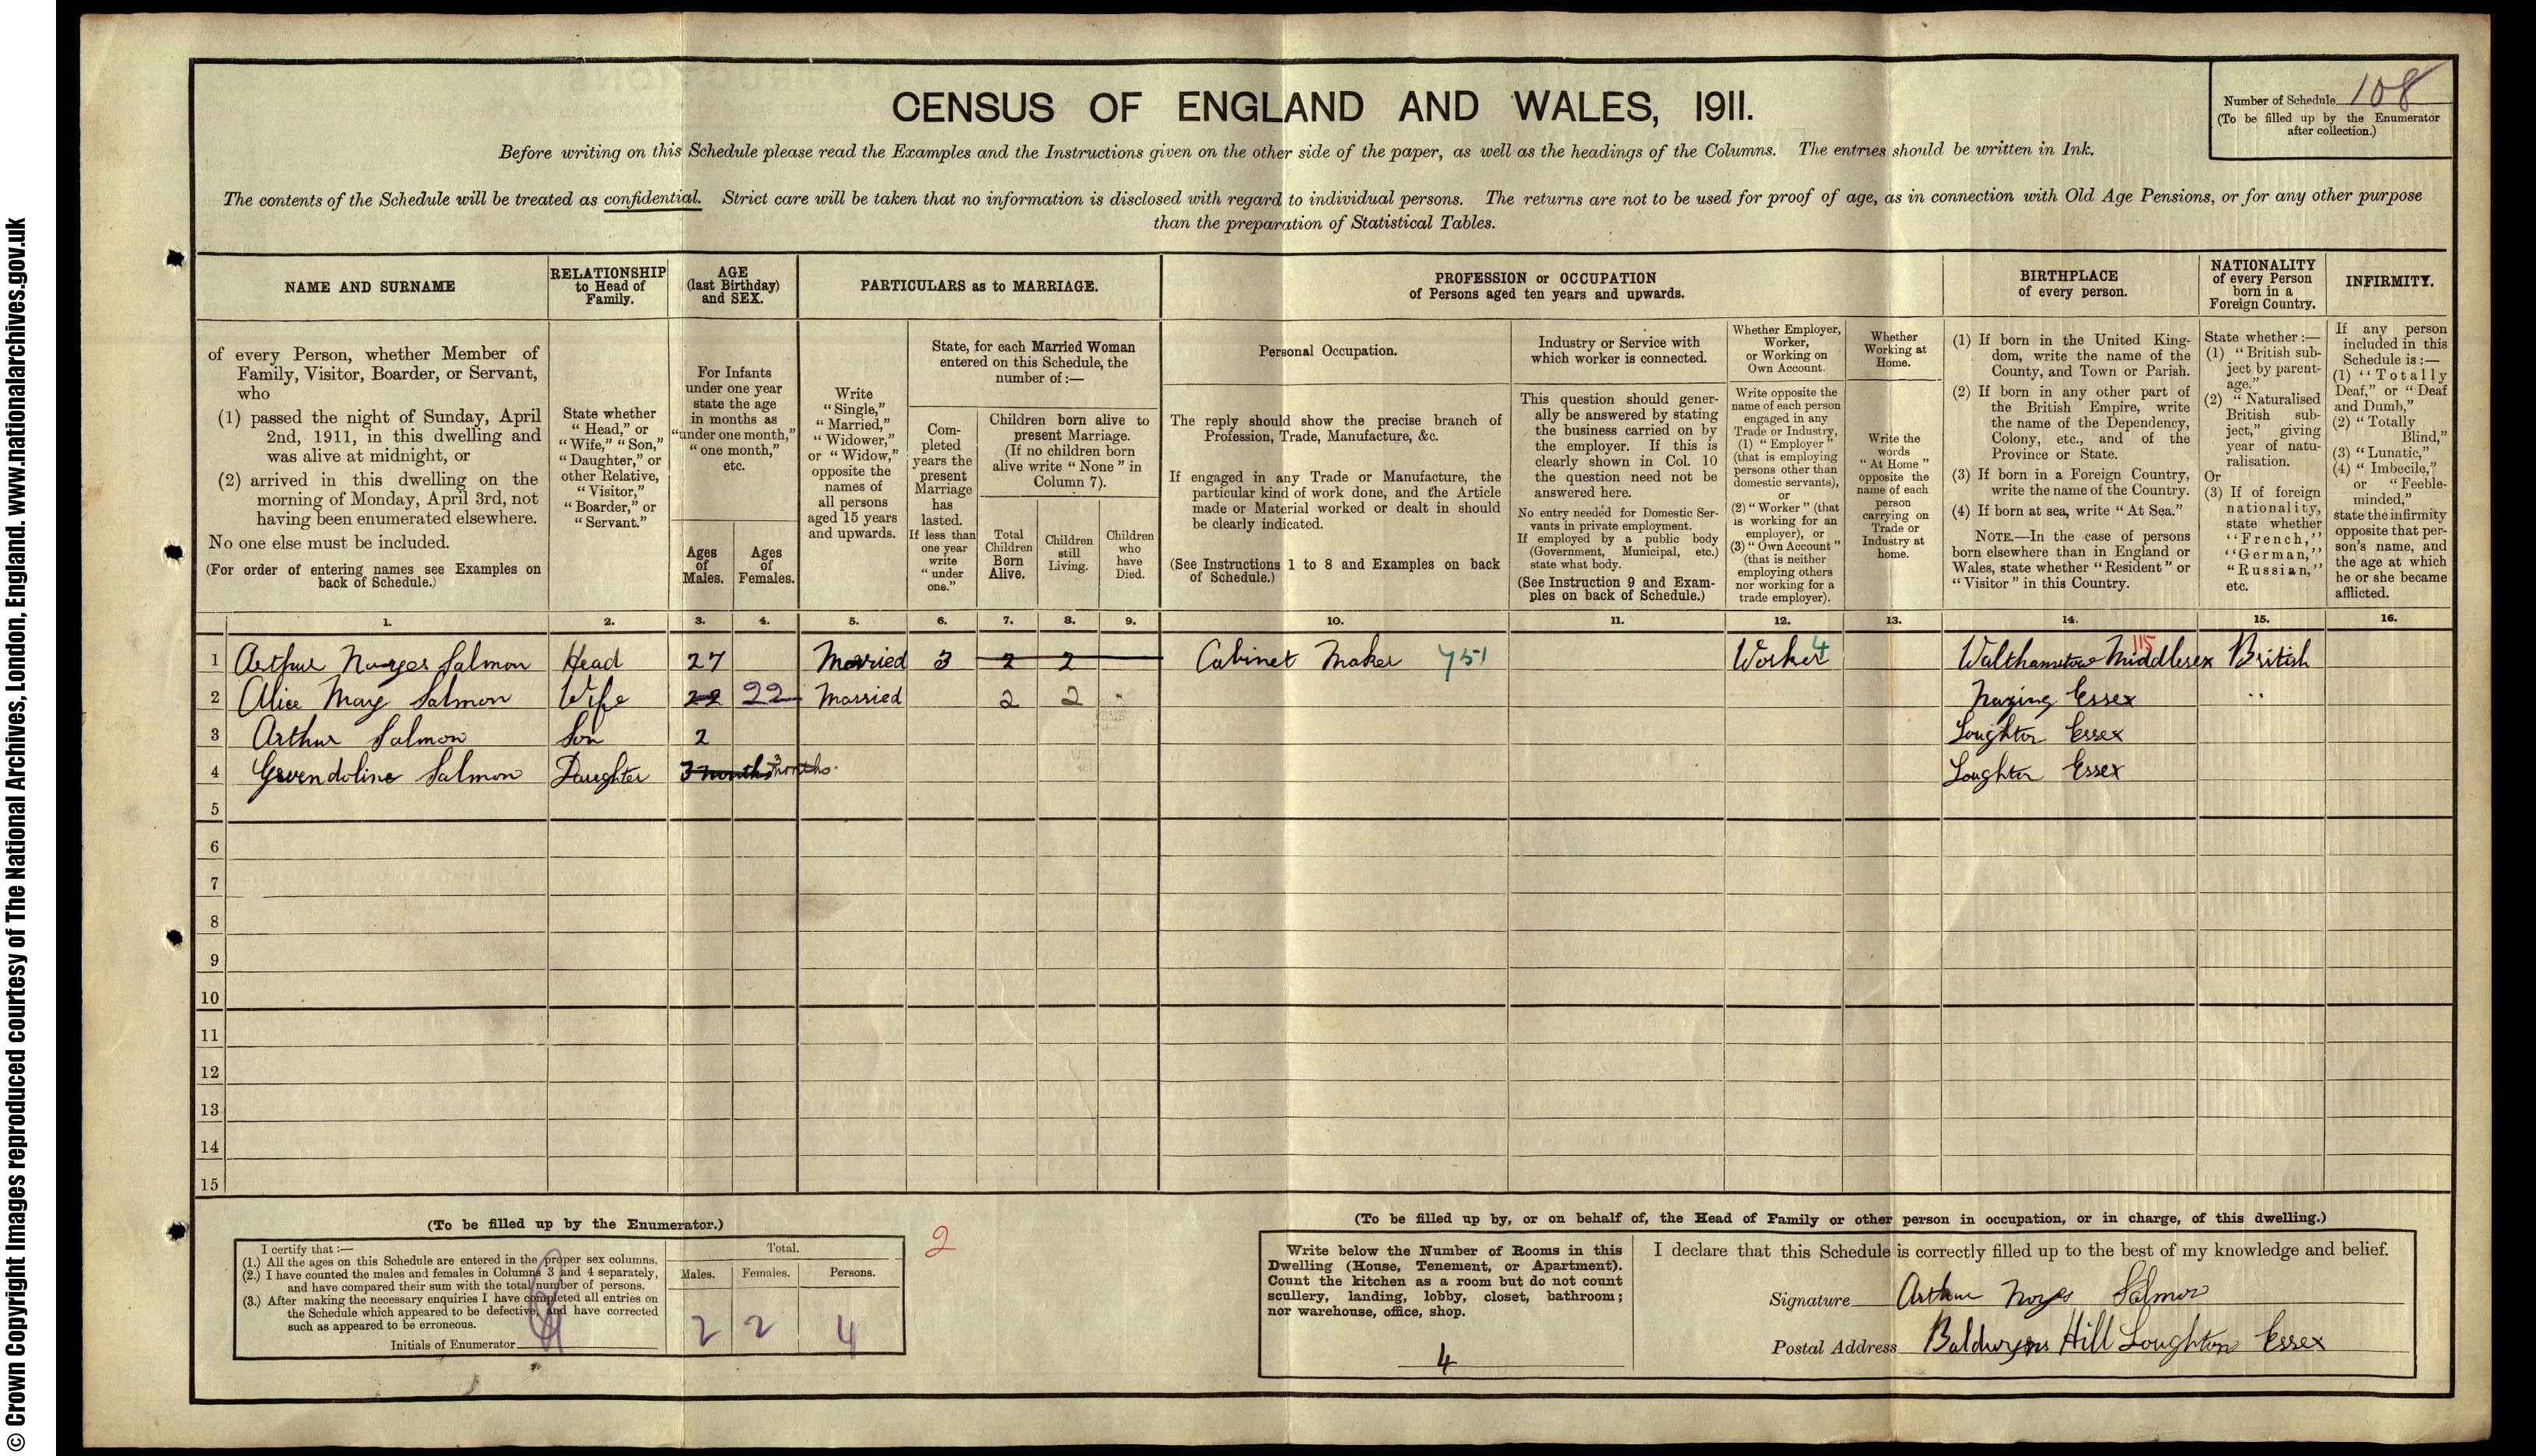 © Crown Copyright Images reproduced courtesy of The National Archives, London, England. www.nationalarchives.gov.uk
CENSUS OF ENGLAND AND WALES, 1911.
Number of Schedule 108
(To be filled up by the Enumerator
after collection.)
Before writing on this Schedule please read the Examples and the Instructions given on the other side of the paper, as well as the headings of the Columns. The entries should be written in Ink.
The contents of the Schedule will be treated as confidential. Strict care will be taken that no information is disclosed with regard to individual persons. The returns are not to be used for proof of age, as in connection with Old Age Pensions, or for any other purpose
than the preparation of Statistical Tables.
NAME AND SURNAME
of every Person, whether Member of
Family, Visitor, Boarder, or Servant,
who
(1) passed the night of Sunday, April
2nd, 1911, in this dwelling and
was alive at midnight, or
(2) arrived in this dwelling on the
morning of Monday, April 3rd, not
having been enumerated elsewhere.
No one else must be included.
(For order of entering names see Examples on
back of Schedule.)
RELATIONSHIP
to Head of
Family.
State whether
"Head," or
"Wife," "Son,"
"Daughter," or
other Relative,
"Visitor,"
"Boarder," or
"Servant."
AGE
(last Birthday)
and SEX.
For Infants
under one year
state the age
in months as
"under one month,"
"one month,"
etc.
Ages
of
Males.
Ages
of
Females.
PARTICULARS as to MARRIAGE.
Write
"Single,"
"Married,"
"Widower,"
or "Widow,"
opposite the
names of
all persons
aged 15 years
and upwards.
State, for each Married Woman
entered on this Schedule, the
number of:—
Com-
pleted
years the
present
Marriage
has
lasted.
If less than
one year
write
"under
one."
Children born alive to
present Marriage.
(If no children born
alive write "None" in
Column 7).
Total
Children
Born
Alive.
Children
still
Living.
Children
who
have
Died.
PROFESSION or OCCUPATION
of Persons aged ten years and upwards.
Personal Occupation.
The reply should show the precise branch of
Profession, Trade, Manufacture, &c.
If engaged in any Trade or Manufacture, the
particular kind of work done, and the Article
made or Material worked or dealt in should
be clearly indicated.
(See Instructions 1 to 8 and Examples on back
of Schedule.)
Industry or Service with
which worker is connected.
This question should gener-
ally be answered by stating
the business carried on by
the employer. If this is
clearly shown in Col. 10
the question need not be
answered here.
No entry needed for Domestic Ser-
vants in private employment.
If employed by a public body
(Government, Municipal, etc.)
state what body.
(See Instruction 9 and Exam-
ples on back of Schedule.)
Whether Employer,
Worker,
or Working on
Own Account.
Write opposite the
name of each person
engaged in any
Trade or Industry,
(1) "Employer"
(that is employing
persons other than
domestic servants),
or
(2) "Worker" (that
is working for an
employer), or
(3) "Own Account"
(that is neither
employing others
nor working for a
trade employer).
Whether
Working at
Home.
Write the
words
"At Home"
opposite the
name of each
person
carrying on
Trade or
Industry at
home.
BIRTHPLACE
of every person.
(1) If born in the United King-
dom, write the name of the
County, and Town or Parish.
(2) If born in any other part of
the British Empire, write
the name of the Dependency,
Colony, etc., and of the
Province or State.
(3) If born in a Foreign Country,
write the name of the Country.
(4) If born at sea, write "At Sea."
NOTE.—In the case of persons
born elsewhere than in England or
Wales, state whether "Resident" or
"Visitor" in this Country.
NATIONALITY
of every Person
born in a
Foreign Country.
State whether:—
(1) "British sub-
ject by parent-
age."
(2) "Naturalised
British sub-
ject," giving
year of natu-
ralisation.
Or
(3) If of foreign
nationality,
state whether
"French,"
"German,"
"Russian,"
etc.
INFIRMITY.
If any person
included in this
Schedule is:—
(1) "Totally
Deaf," or "Deaf
and Dumb,"
(2) "Totally
Blind,"
(3) "Lunatic,"
(4) "Imbecile,"
or "Feeble-
minded,"
state the infirmity
opposite that per-
son's name, and
the age at which
he or she became
afflicted.
1. 2. 3. 4. 5. 6. 7. 8. 9. 10. 11. 12. 13. 14. 15. 16.
1 Arthur Noyes Salmon Head 27 Married 3 2 2 Cabinet Maker 751 Worker 4 Walthamstow Middlesex 115 British
2 Alice May Salmon Wife 22 22 Married 2 2 - Nazing Essex ..
3 Arthur Salmon Son 2 Loughton Essex
4 Gwendoline Salmon Daughter 3 months 3 months. Loughton Essex
5
6
7
8
9
10
11
12
13
14
15
(To be filled up by the Enumerator.)
I certify that:—
(1.) All the ages on this Schedule are entered in the proper sex columns.
(2.) I have counted the males and females in Columns 3 and 4 separately,
and have compared their sum with the total number of persons.
(3.) After making the necessary enquiries I have completed all entries on
the Schedule which appeared to be defective, and have corrected
such as appeared to be erroneous.
Initials of Enumerator
Total.
Males. Females. Persons.
2 2 4
2
(To be filled up by, or on behalf of, the Head of Family or other person in occupation, or in charge, of this dwelling.)
Write below the Number of Rooms in this
Dwelling (House, Tenement, or Apartment).
Count the kitchen as a room but do not count
scullery, landing, lobby, closet, bathroom;
nor warehouse, office, shop.
4
I declare that this Schedule is correctly filled up to the best of my knowledge and belief.
Signature Arthur Noyes Salmon
Postal Address Baldwyns Hill Loughton Essex